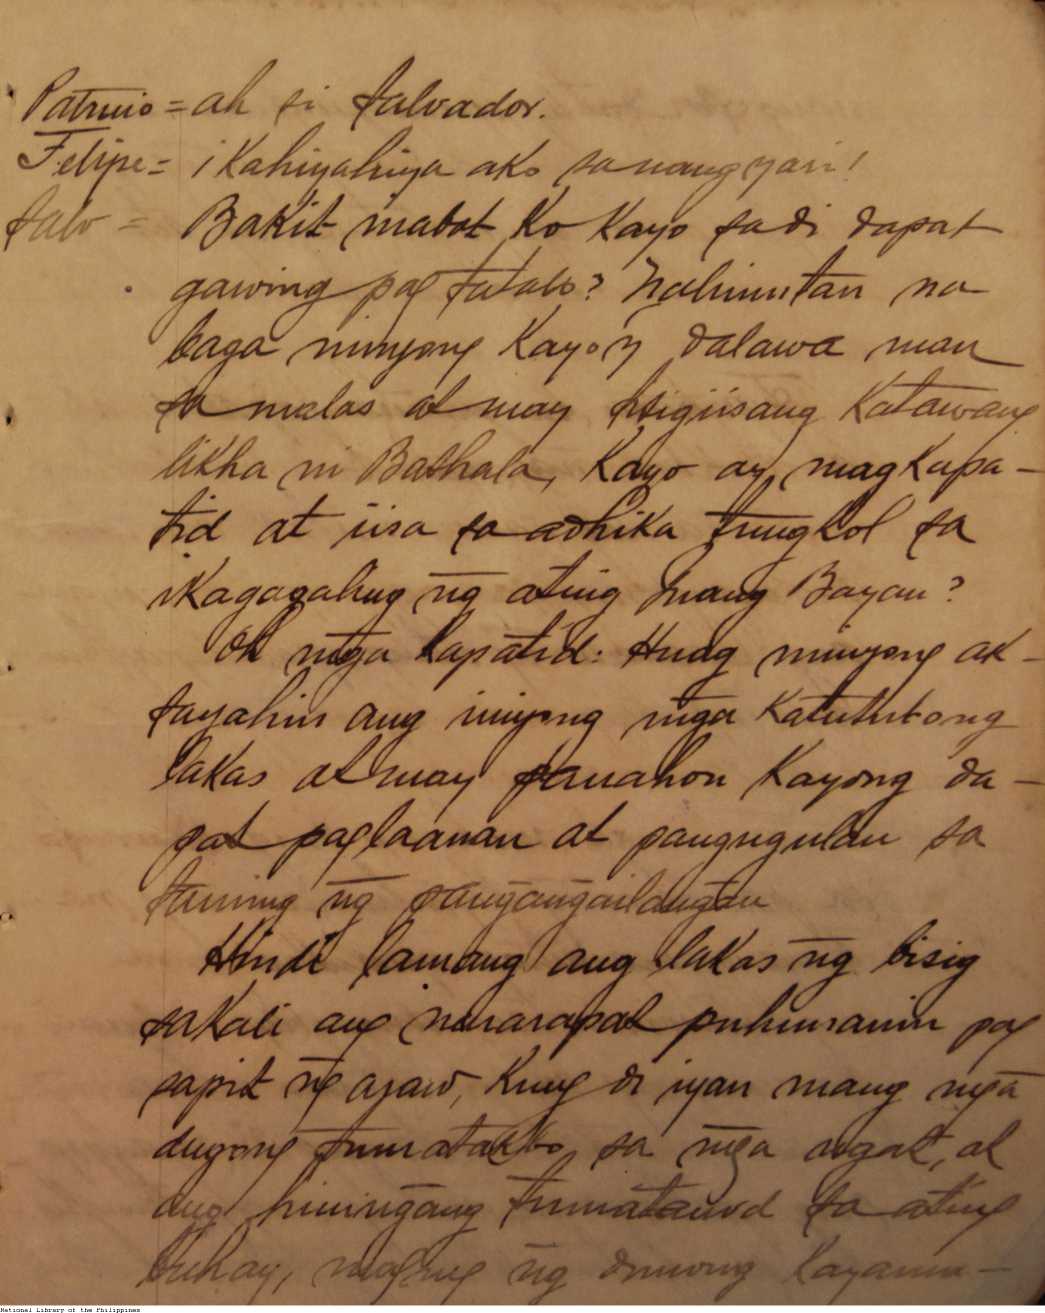 Patricio = ah si Salvador.
Felipe = ikahiyahiya ako sa nangyari!
Salv = Bakit mabot ko kayo sa di dapat
gawing pag tatalo? Nalimutan na
baga ninyong kayo'y dalawa man
sa malas at may tsigiisang katawang
likha ni Bathala, kayo ay magkapa-
tid at iisa sa adhika tungkol sa
ikagagaling ng ating Inang Bayan?
Oh mga kapatid: Huag ninyong ak-
sayahin ang inyong mga katutubong
lakas at may panahon kayong da-
pat paglaanan at pangugulan sa
taning ng pangangailangan
Hindi lamang ang lakas ng bisig
sakali ang nararapat puhunanin pag
sapit ng araw, kung di iyan mang mga
dugong tumatakbo sa mga ugat, at
ang hiningang tumatawid sa ating
buhay, ng dunong
National Library of the Philippines